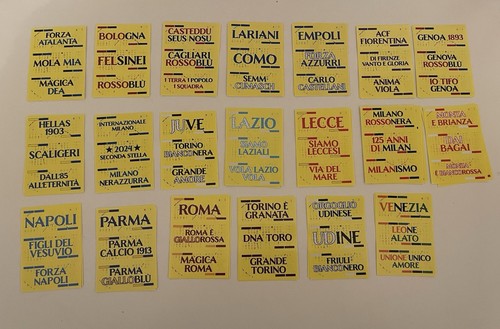 FORZA
ATALANTA
MOLA MIA
MAGICA
DEA
BOLOGNA
FELSINEI
ROSSOBLÙ
CASTEDDU
SEUS NOSU
CAGLIARI
ROSSOBLÙ
1 TERRA 1 POPOLO
1 SQUADRA
LARIANI
COMO
SEMM
CUMASCH
EMPOLI
FORZA
AZZURRI
CARLO
CASTELLANI
ACF
FIORENTINA
DI FIRENZE
VANTO E GLORIA
ANIMA
VIOLA
GENOA 1893
GENOVA
ROSSOBLÙ
IO TIFO
GENOA
HELLAS
1903
SCALIGERI
DALL'85
ALL'ETERNITÀ
INTERNAZIONALE
MILANO
★ 2024 ★
SECONDA STELLA
MILANO
NERAZZURRA
JUVE
TORINO
BIANCONERA
GRANDE
AMORE
LAZIO
SIAMO
LAZIALI
VOLA LAZIO
VOLA
LECCE
SIAMO
LECCESI
VIA DEL
MARE
MILANO
ROSSONERA
125 ANNI
DI MILAN
MILANISMO
MONZA
E BRIANZA
DAI
BAGAI
MONZA
BIANCOROSSA
NAPOLI
FIGLI DEL
VESUVIO
FORZA
NAPOLI
PARMA
PARMA
CALCIO 1913
PARMA
GIALLOBLÙ
ROMA
ROMA È
GIALLOROSSA
MAGICA
ROMA
TORINO È
GRANATA
DNA TORO
GRANDE
TORINO
ORGOGLIO
UDINESE
UDINE
FRIULI
BIANCONERO
VENEZIA
LEONE
ALATO
UNIONE UNICO
AMORE